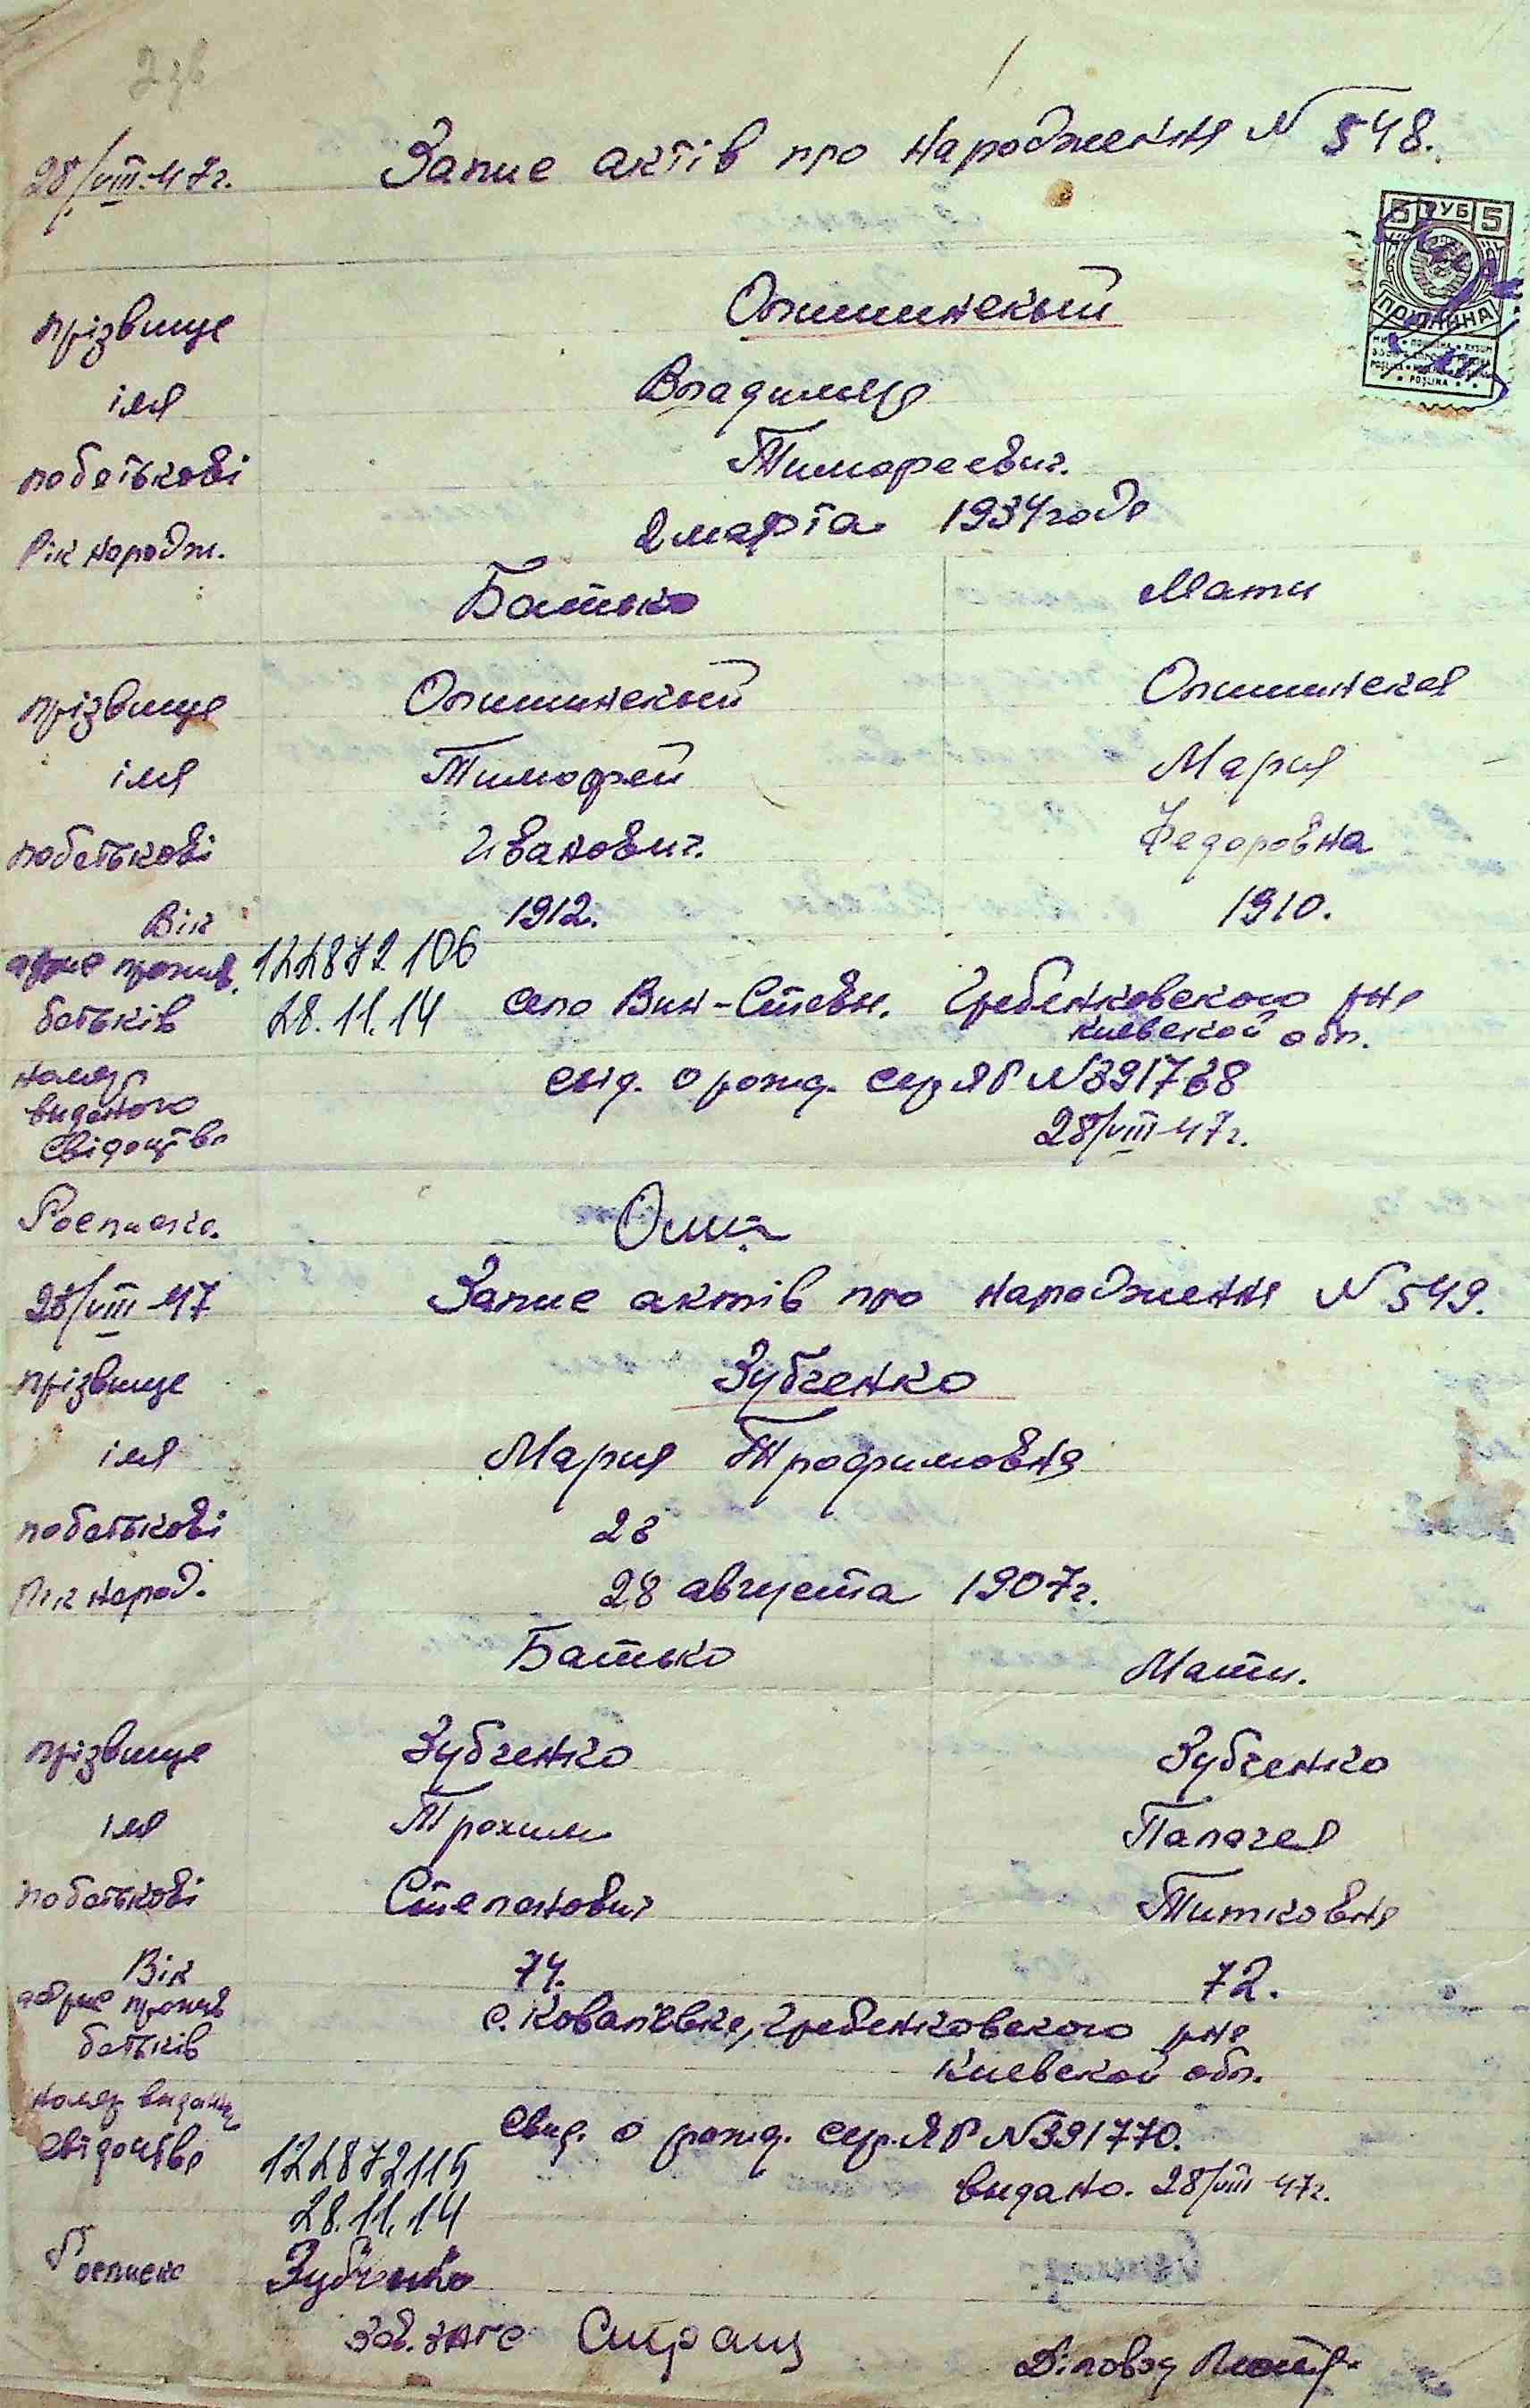 28/VIII-47г. Запис актів про народження N 548.
5 РУБ 5
ПОШЛИНА
прізвище
імя Владимир
побатькові Тимофеевич.
Рік народж. 2 марта 1934 года
Батько Мати
прізвище
імя Тимофей Мария
побатькові Иванович. Федоровна
Вік 1912. 1910.
адрис прожив. 122872106
батьків 28.11.14 село Вин-Ставы. Гребенковского р-на
Киевской обл.
номер свид. о рожд. сер ЯР N
виданого
свідоцтва 28/VIII-47г.
Росписка.
28/VIII-47 Запис актів про народження N 549.
прізвище Зубченко
імя Мария Трофимовна
побатькові 28
Рік народ. 28 августа 1907г.
Батько Мати.
прізвище Зубченко Зубченко
імя Трохим Палагея
побатькові Степанович Титковна
Вік 74. 72.
адрис прожив с. Ковалевка, Гребенковского р-на
батьків Киевской обл.
номер видан. свид. о рожд. сер. ЯР N 391770.
свідоцтва 122872115 видано. 28/VIII-47г.
28.11.14
Росписка Зубченко
Зав. загс
Діловод